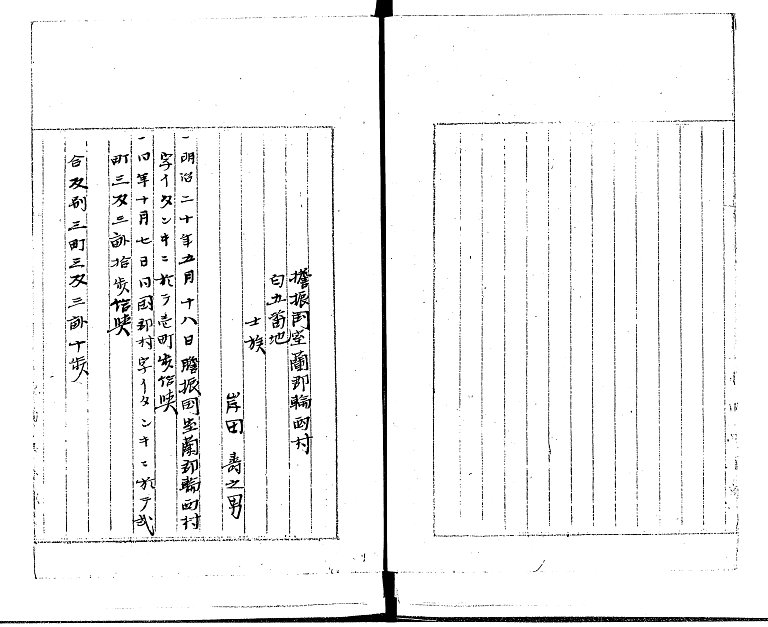 膽振国室蘭郡輪西村
百五番地
士族
岸田 寿之男
一明治二十年五月十八日膽振国室蘭郡輪西村
字イタンキニ於テ壱町歩貸
一同年十月七日同国郡村字イタンキニ於テ弐
町三反三畝拾歩貸
合反別三町三反三畝十歩